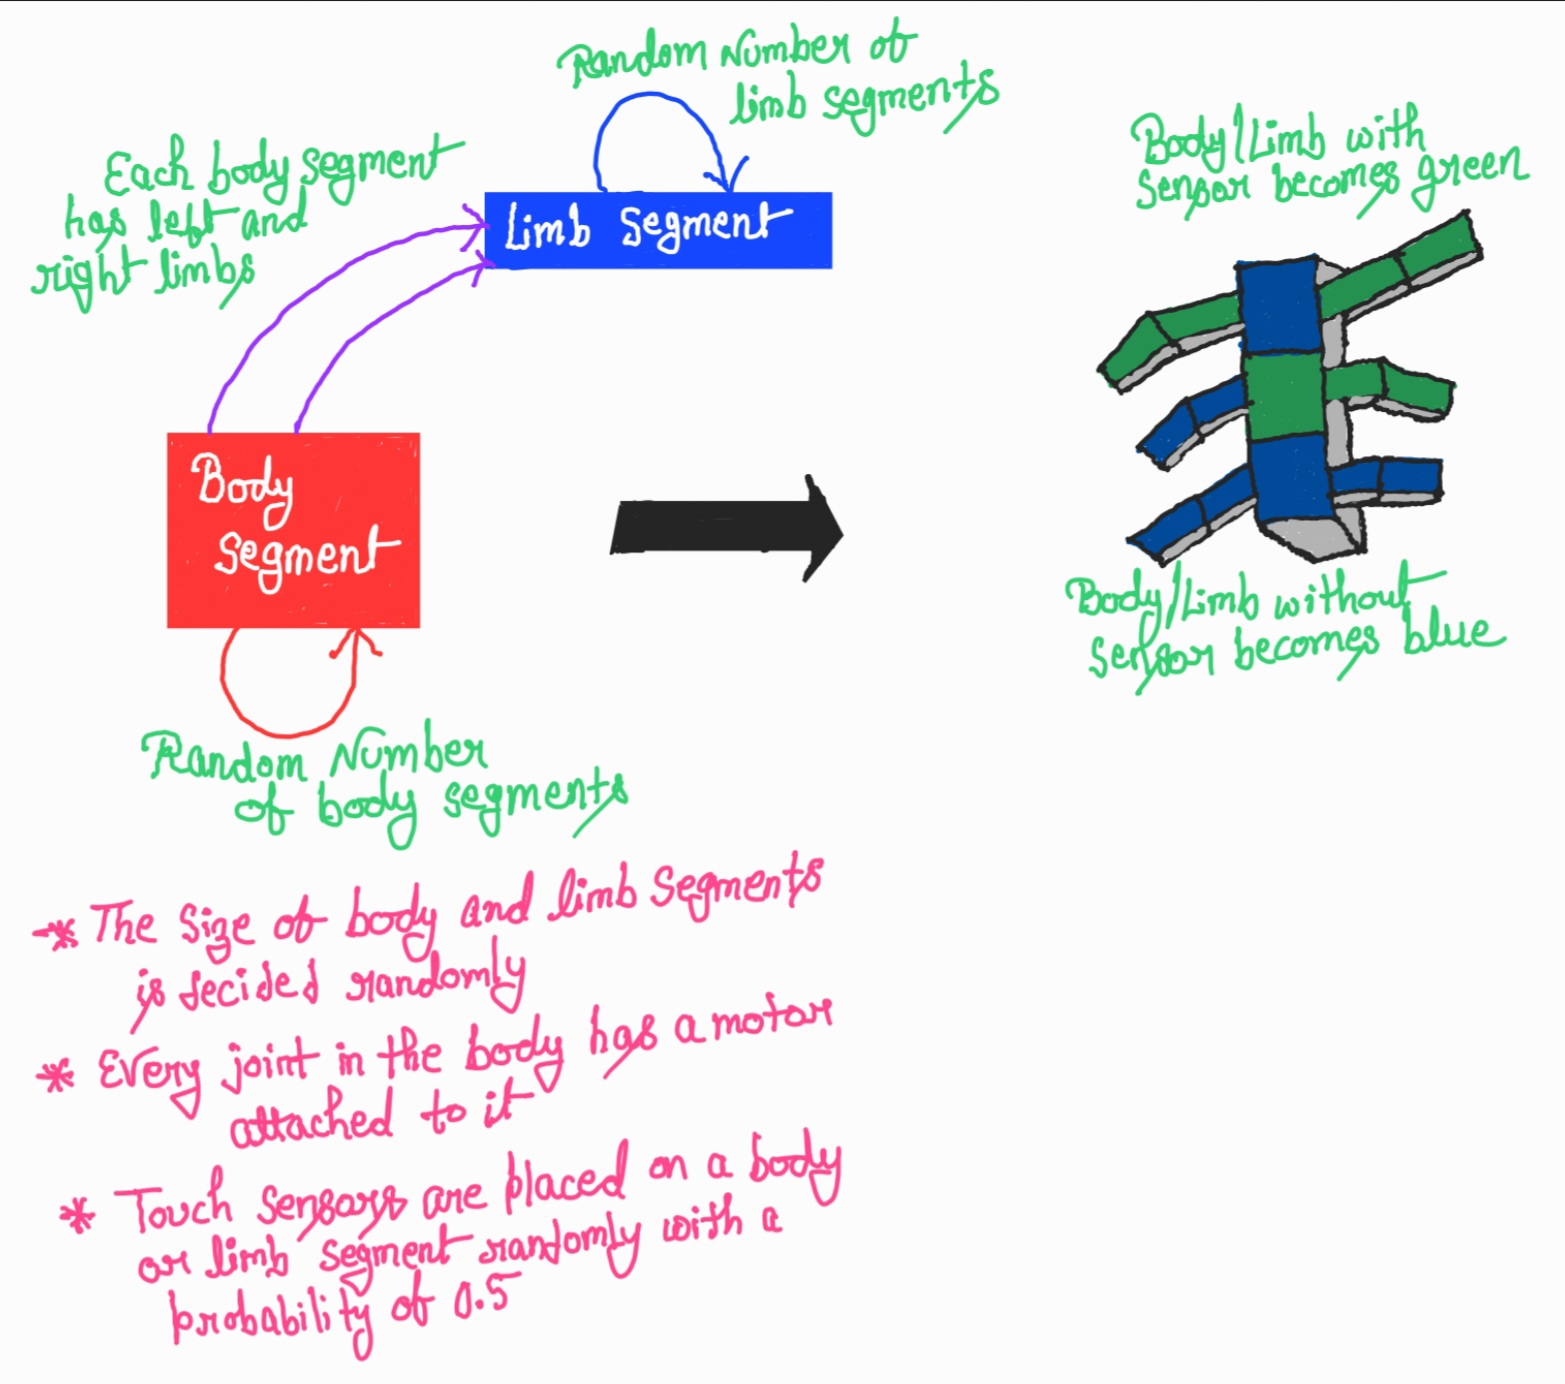 Random Number of
limb segments
Each body segment
has left and
right limbs
Limb Segment
Body/Limb with
sensor becomes green
Body
Segment
Body/Limb without
sensor becomes blue
Random Number
of body segments
* The size of body and limb segments
is decided randomly
* Every joint in the body has a motor
attached to it
* Touch sensors are placed on a body
or limb segment randomly with a
probability of 0.5